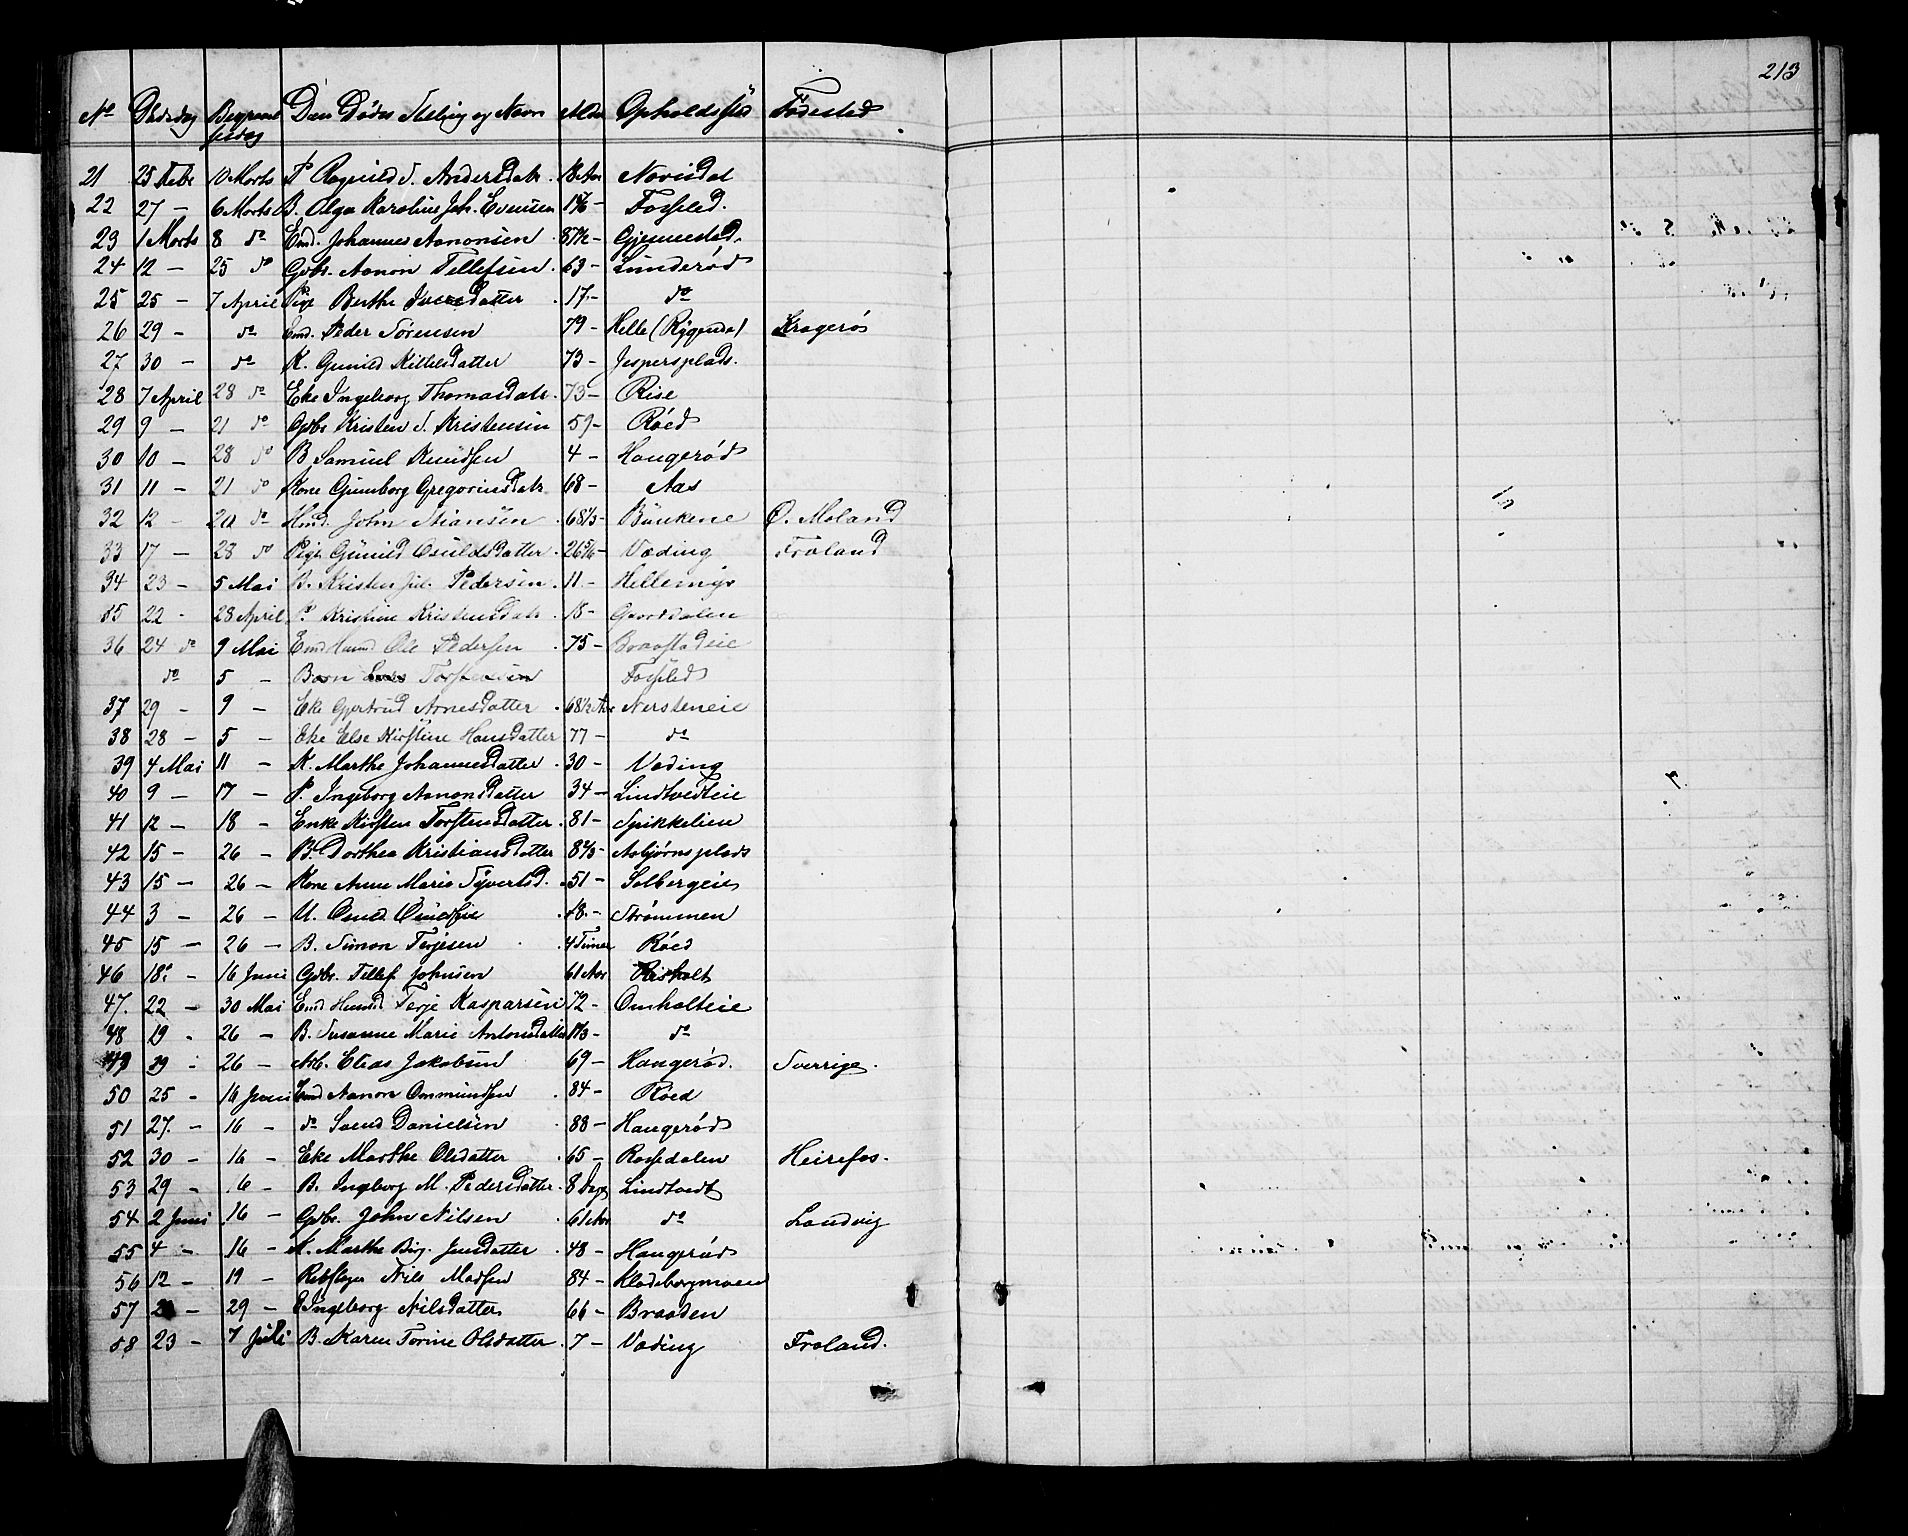 213
No Dødsdag Begravelsesdag Den Dødes Stilling og Navn Alder Opholdssted Fødested
21 25 Febr 10 Marts P Ragnild S. Andersdatr. 18 Aar Navisdal
22 27 – 6 Marts B. Olga Karoline Joh. Evensen Fosfled.
23 1 Marts 8 do Emd. Johannes Aanonsen Gjennestad.
24 12 – 25 do Gdbr. Aanon Tellefsen 63 – Lunderød
25 25 – 7 April Pige Berthe Iversdatter 17 – do
26 29 – do Emd. Peder Sørensen 79 – Helle (Rygende) Kragerø
27 30 – do K. Gunild Kittelsdatter 73 – Jespersplads.
28 7 April 28 do Eke Ingeborg Thomasdatr. 73 – Rise
29 9 – 21 do Gdbr Kristen S. Kristensen 59 – Røed
30 10 – 28 do B Samuel Knudsen 4 – Haugerød
31 11 – 21 do Kone Gunborg Gregoriusdatr 68 – Aas
32 12 – 20 do Hmd. John Stiansen 68 1/3 – Bunkene Ø. Moland
33 17 – 28 do Pige Gunild Osuldsdatter 26 5/6 – Vøding Froland
34 23 – 5 Mai B. Kristen Jul. Pedersen 11 – Hellemyr
35 22 – 28 April P. Kristine Kristensdatr 18 –
36 24 do 9 Mai Emd Huusmd Ole Pedersen 75 – Braastadeie
do 5 – Barn Torstensen Fosfled
37 29 – 9 – Eke Gjertrud Arnesdatter 68 1/2 Aar Nersteneie
38 28 – 5 – Eke Else Kirstine Hansdatter 77 – do
39 4 Mai 11 – K. Marthe Johannesdatter 30 – Vøding
40 9 – 17 – P. Ingeborg Aanonsdatter 34 – Lindtvedteie
41 12 – 18 – Enke Kirsten Torstensdatter 81 – Spikkelien
42 15 – 26 – B. Dorthea Kristiansdatter 8 2/3 – Asbjørnsplads
43 15 – 26 – Kone Anne Marie Syvertsd. 51 – Solbergeie
44 3 – 26 – U. 18 – Strømmen
45 15 – 26 – B. Simon Terjesen 4 Timer Røed
46 18 – 16 Juni Gdbr. Tellef Johnsen 61 Aar Risholt
47. 22 – 30 Mai Emd Husmd Terje Kasparsen 72 – Omholteie
48 19 – 26 – B. Susanne Marie Antonsdatter do
49 19 – 26 – Arb. Elias Jakobsen 69 – Haugerød. Sverrige.
50 25 – 16 Juni Emd Aanon Ommundsen 84 – Røed
51 27. – 16 – do Svend Danielsen 88 – Haugerød
52 30 – 16 – Eke Marthe Olsdatter 65 – Rossedalen Heirefos.
53 29 – 16 – B. Ingeborg M. Pedersdatter 8 Dage Lindtvedt
54 2 Juni 16 – Gdbr. John Nilsen 61 Aar do Landvig
55 4 – 16 – K. Marthe Birg. Jensdatter 48 – Haugerød
56 12 – 19 – Rebslager Nils Madsen 84 – Kladebergmoen
57 – 29 – E Ingeborg Nilsdatter 66 – Braaden
58 23 – 7 Juli B. Karen Torine Olsdatter 7 – Vøding Froland.